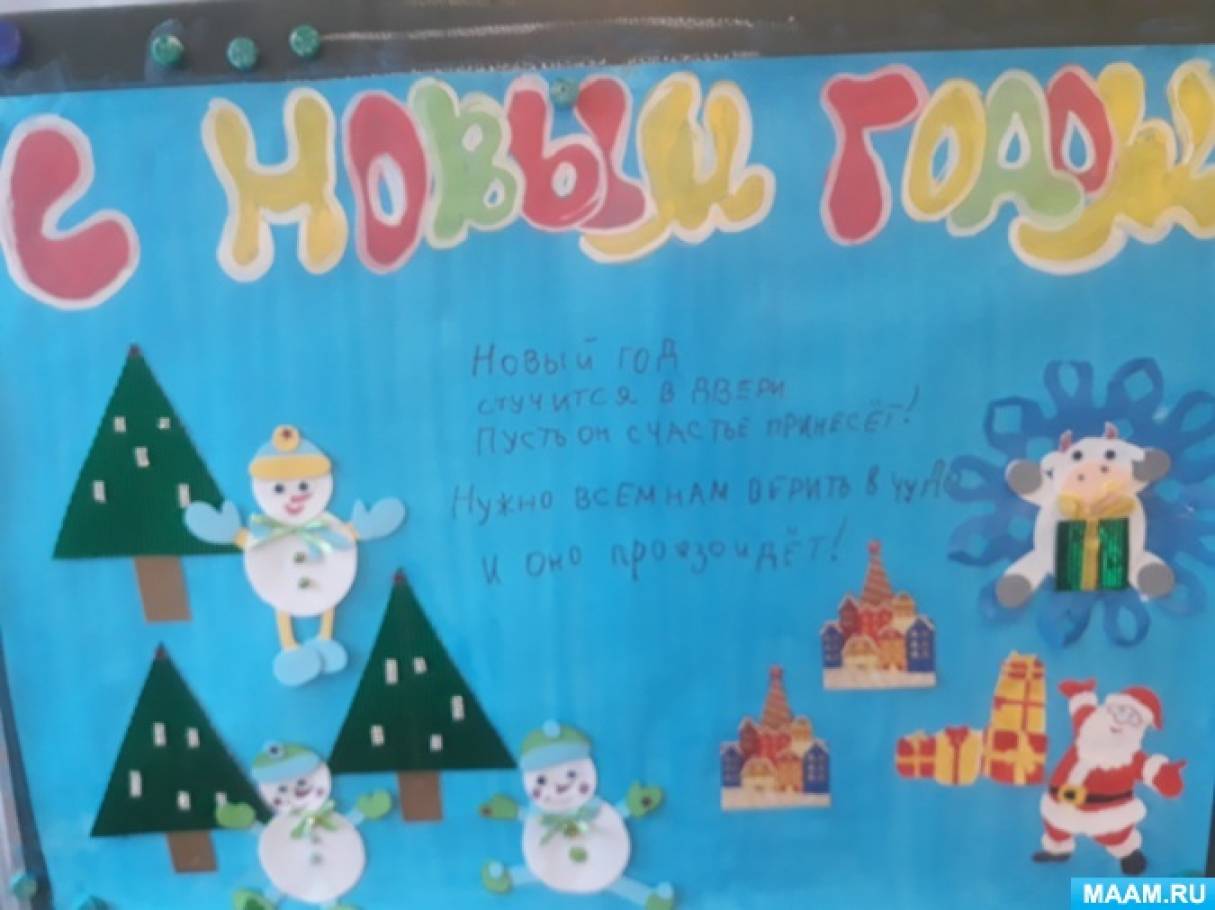 С НОВЫМ ГОДОМ
НОВЫЙ ГОД
СТУЧИТСЯ В ДВЕРИ
ПУСТЬ ОН СЧАСТЬЕ ПРИНЕСЁТ!
НУЖНО ВСЕМ НАМ ВЕРИТЬ В ЧУДО
И ОНО ПРОИЗОЙДЁТ!
MAAM.RU